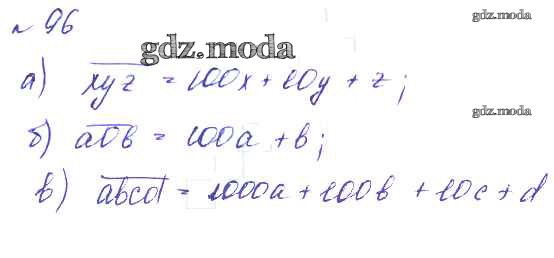 № 96
gdz.moda
а) \overline{xyz} = 100x + 10y + z;
gdz.moda
б) \overline{a0b} = 100a + b;
в) \overline{abcd} = 1000a + 100b + 10c + d